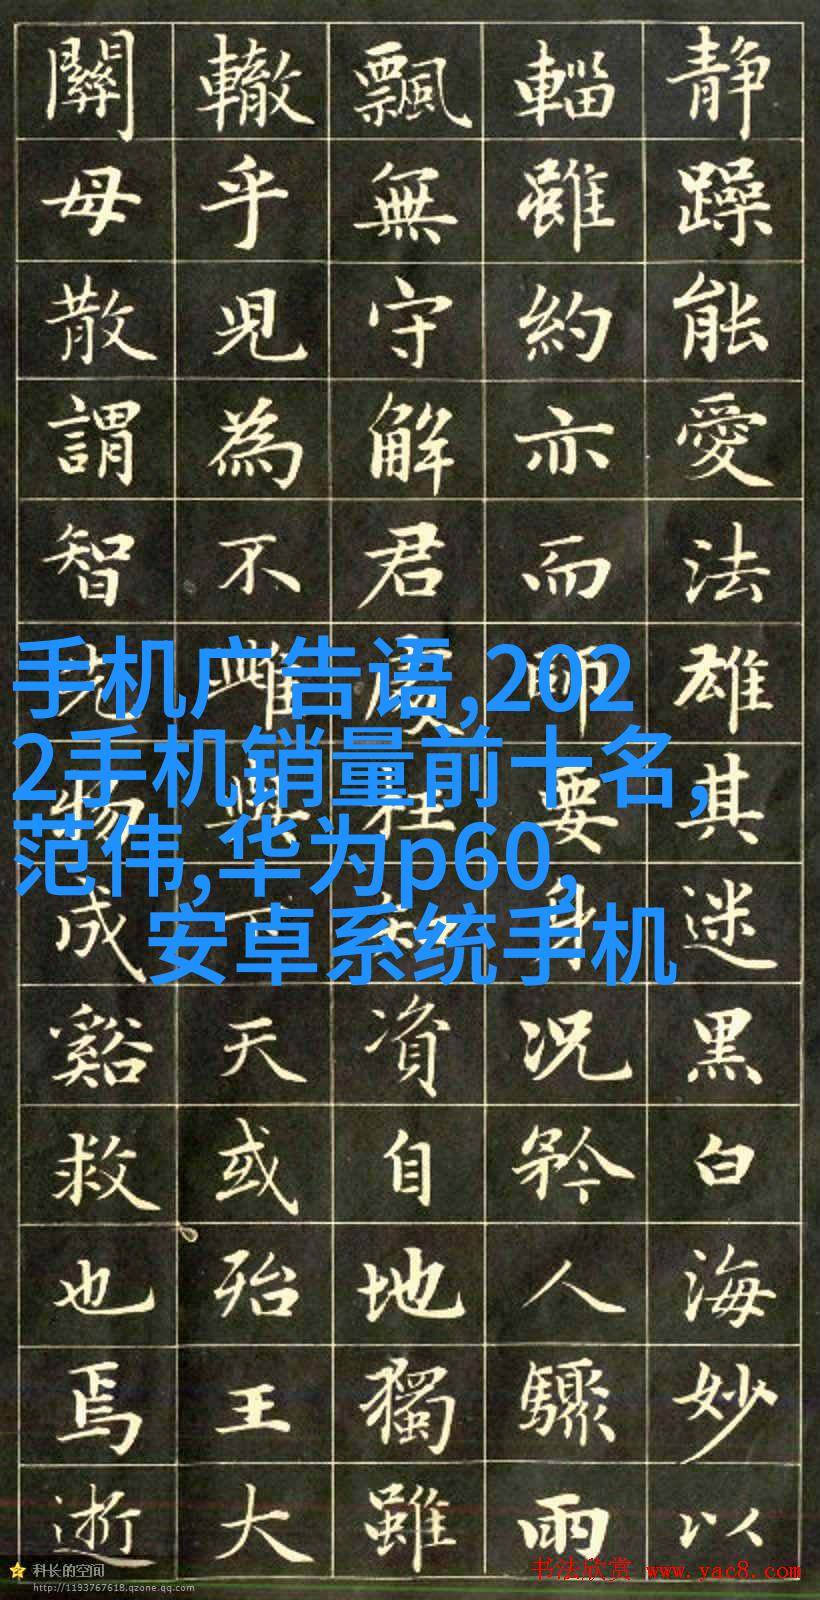 静躁能愛法雄其迷黑白海妙以
輜雖約亦而師要身况矜人驟雨
飄無守解君處知資自地獨雖
轍乎兒為不雌與下天或殆王大
關母散謂智物成谿救也焉逝
手机广告语,202
2手机销量前十名,
范伟,华为p60,
安卓系统手机
科长的空间
http://1193767618.qzone.qq.com
书法欣赏 www.yac8.com